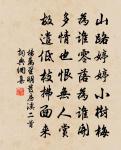 山路婷婷小樹梅
為誰零落為誰開
多情也恨無人賞
故遣低枝拂面來
楊萬里明發房溪二首
詞典網集